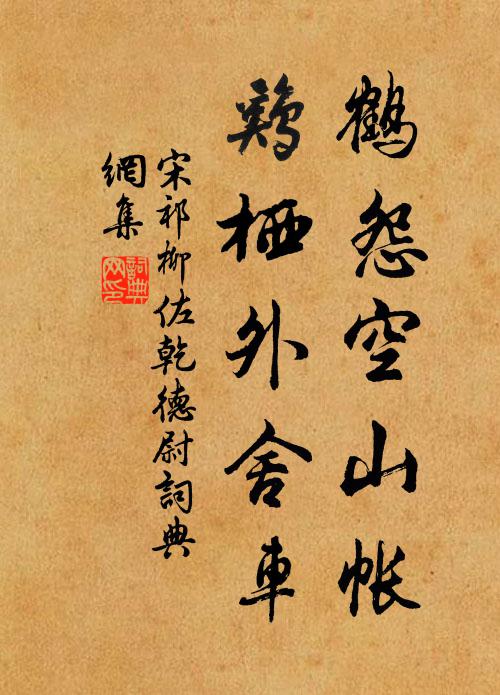 鶴怨空山帳
鷄栖外舍車
宋祁柳佐乾德尉詞典
網集
詞典網印